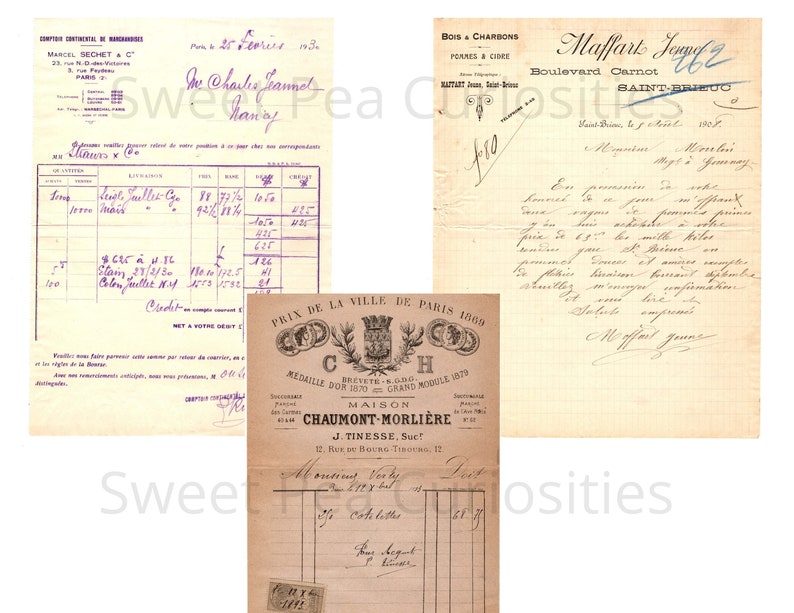 COMPTOIR CONTINENTAL DE MARCHANDISES
MARCEL SECHET & Cie
23, rue N.-D.-des-Victoires
3, rue Feydeau
PARIS (2e)
TÉLÉPHONE
CENTRAL
GUTENBERG
LOUVRE
Paris, le 25 Février 1930
Mr Charles Jeannel
Nancy
Ci-dessous veuillez trouver relevé de votre position à ce jour chez nos correspondants
MM Straurs & Co
QUANTITÉS
ACHATS VENTES LIVRAISON PRIX BASE DÉBIT CRÉDIT
5000 Seigle Juillet Cgo 88 77½ 1050
10000 Mais " " 92½ 88¼ 425
1050 425
425
625
$ 625 à H. 86 126
5 Etain 28/2/30 180.10 172.5 41
100 Coton Juillet N.Y 1553 1532 21
Crédit en compte courant $
NET A VOTRE DÉBIT
Veuillez nous faire parvenir cette somme par retour du courrier, en c
et les règles de la Bourse.
Avec nos remerciements anticipés, nous vous présentons, M
distinguées.
COMPTOIR CONTINENTAL
BOIS & CHARBONS
POMMES & CIDRE
Adresse Télégraphique :
MAFFART Jeune, Saint-Brieuc
TÉLÉPHONE 2-40
Maffart Jeune
162
Boulevard Carnot
SAINT-BRIEUC
Saint-Brieuc, le 5 Août 1908.
fo 80
Monsieur Moulois
Négt à Gournay
En possession de votre
honorée de ce jour m'offrant
deux wagons de pommes primes
j'en suis acheteur à votre
prix de 63 les mille kilos
rendus gare St Brieuc en
pommes douces et amères exemptes
de flétries livraison courant septembre
Veuillez m'envoyer confirmation
et me lire
Saluts empressés
Maffart Jeune
PRIX DE LA VILLE DE PARIS 1869
C H
BRÉVETÉ - S.G.D.G.
MÉDAILLE D'OR 1870 = GRAND MODULE 1879
SUCCURSALE
MARCHÉ
des Carmes
40 & 44
SUCCURSALE
MARCHÉ
No 62
MAISON
CHAUMONT-MORLIÈRE
J. TINESSE, Sucr
12, RUE DU BOURG-TIBOURG, 12.
Monsieur Verly Doit
Paris, le 12 Xbre
250 cotelettes 68 75
Pour Acquit
J. Tinesse
12 Xbre
1895
Sweet Pea Curiosities
Sweet Pea Curiosities